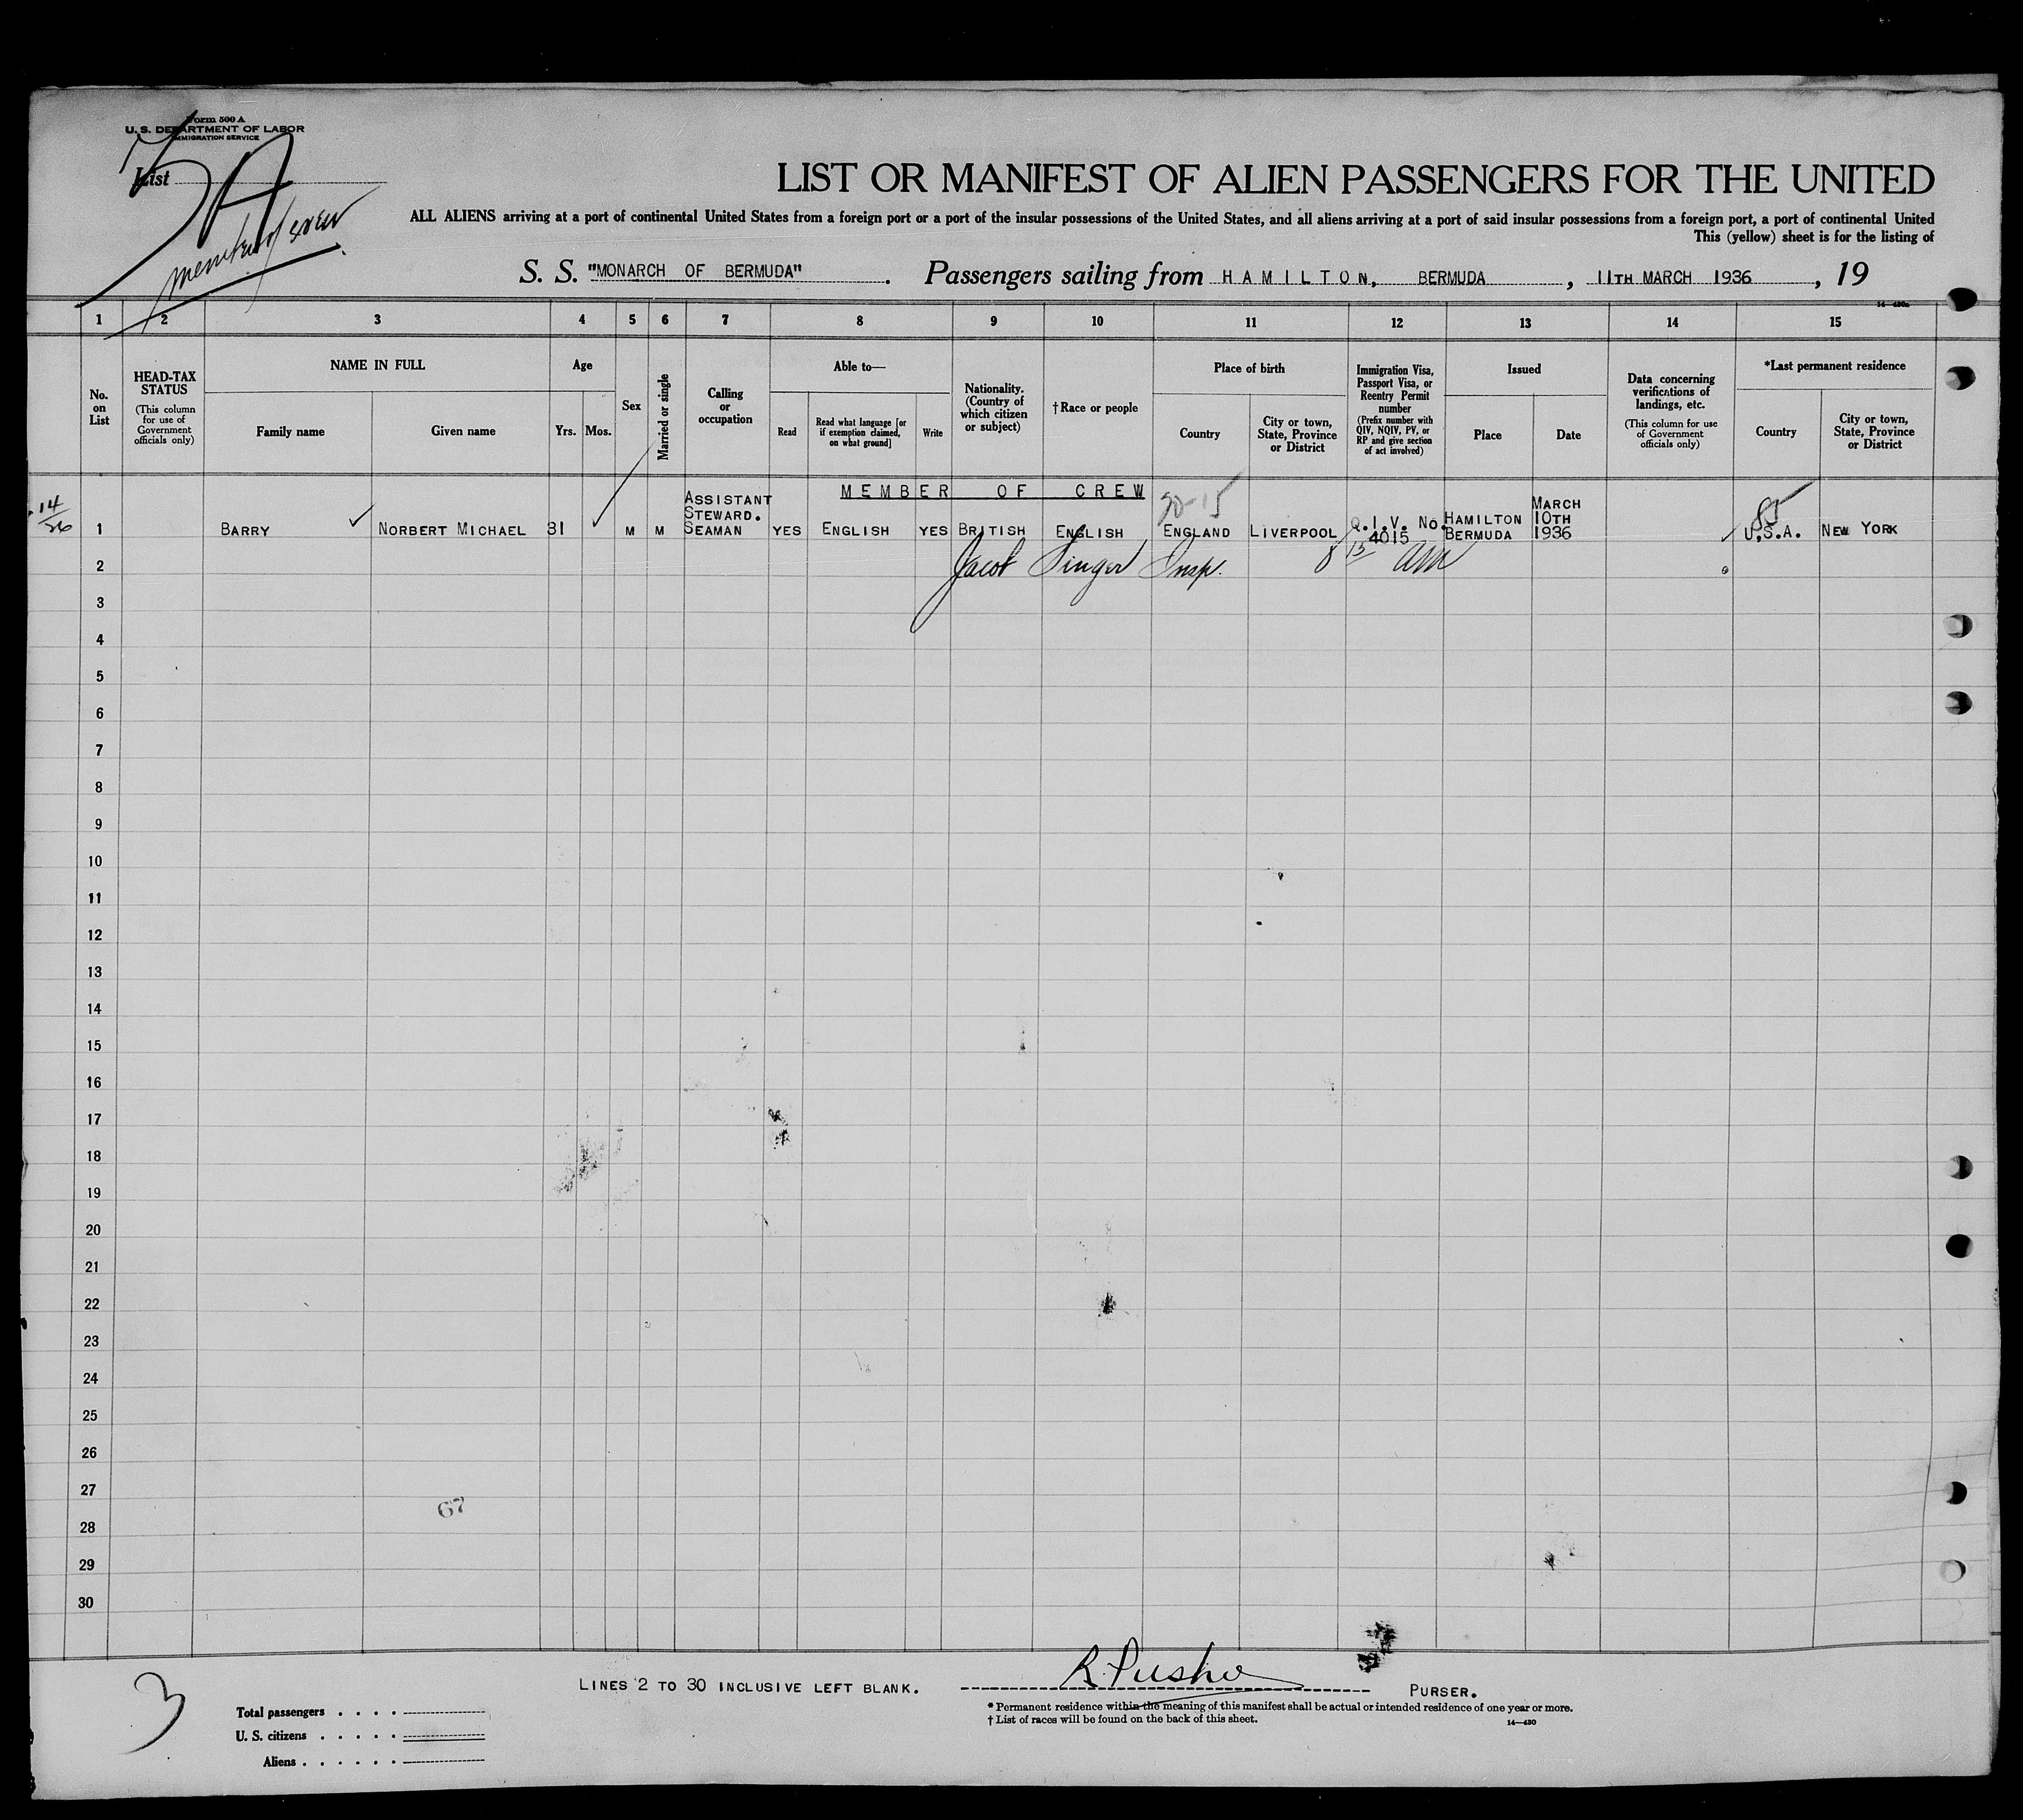 Form 500 A
U. S. DEPARTMENT OF LABOR
IMMIGRATION SERVICE
List
5A
member of crew
LIST OR MANIFEST OF ALIEN PASSENGERS FOR THE UNITED
ALL ALIENS arriving at a port of continental United States from a foreign port or a port of the insular possessions of the United States, and all aliens arriving at a port of said insular possessions from a foreign port, a port of continental United
This (yellow) sheet is for the listing of
S. S. "MONARCH OF BERMUDA". Passengers sailing from HAMILTON, BERMUDA, 11TH MARCH 1936, 19
1 2 3 4 5 6 7 8 9 10 11 12 13 14 15
No. on List
HEAD-TAX STATUS
(This column for use of Government officials only)
NAME IN FULL
Family name
Given name
Age
Yrs.
Mos.
Sex
Married or single
Calling or occupation
Able to—
Read
Read what language [or if exemption claimed, on what ground]
Write
Nationality. (Country of which citizen or subject)
†Race or people
Place of birth
Country
City or town, State, Province or District
Immigration Visa, Passport Visa, or Reentry Permit number
(Prefix number with QIV, NQIV, PV, or RP and give section of act involved)
Issued
Place
Date
Data concerning verifications of landings, etc.
(This column for use of Government officials only)
*Last permanent residence
Country
City or town, State, Province or District
MEMBER OF CREW
14/26
1 BARRY NORBERT MICHAEL 31 M M ASSISTANT STEWARD. SEAMAN YES ENGLISH YES BRITISH ENGLISH ENGLAND LIVERPOOL Q.I.V. No. 4015 HAMILTON BERMUDA MARCH 10TH 1936 U.S.A. NEW YORK
85
2 Jacob Singer Insp. 8 15 am
3
4
5
6
7
8
9
10
11
12
13
14
15
16
17
18
19
20
21
22
23
24
25
26
27
67
28
29
30
3
LINES 2 TO 30 INCLUSIVE LEFT BLANK. PURSER.
Total passengers
U. S. citizens
Aliens
* Permanent residence within the meaning of this manifest shall be actual or intended residence of one year or more.
† List of races will be found on the back of this sheet.
14—430